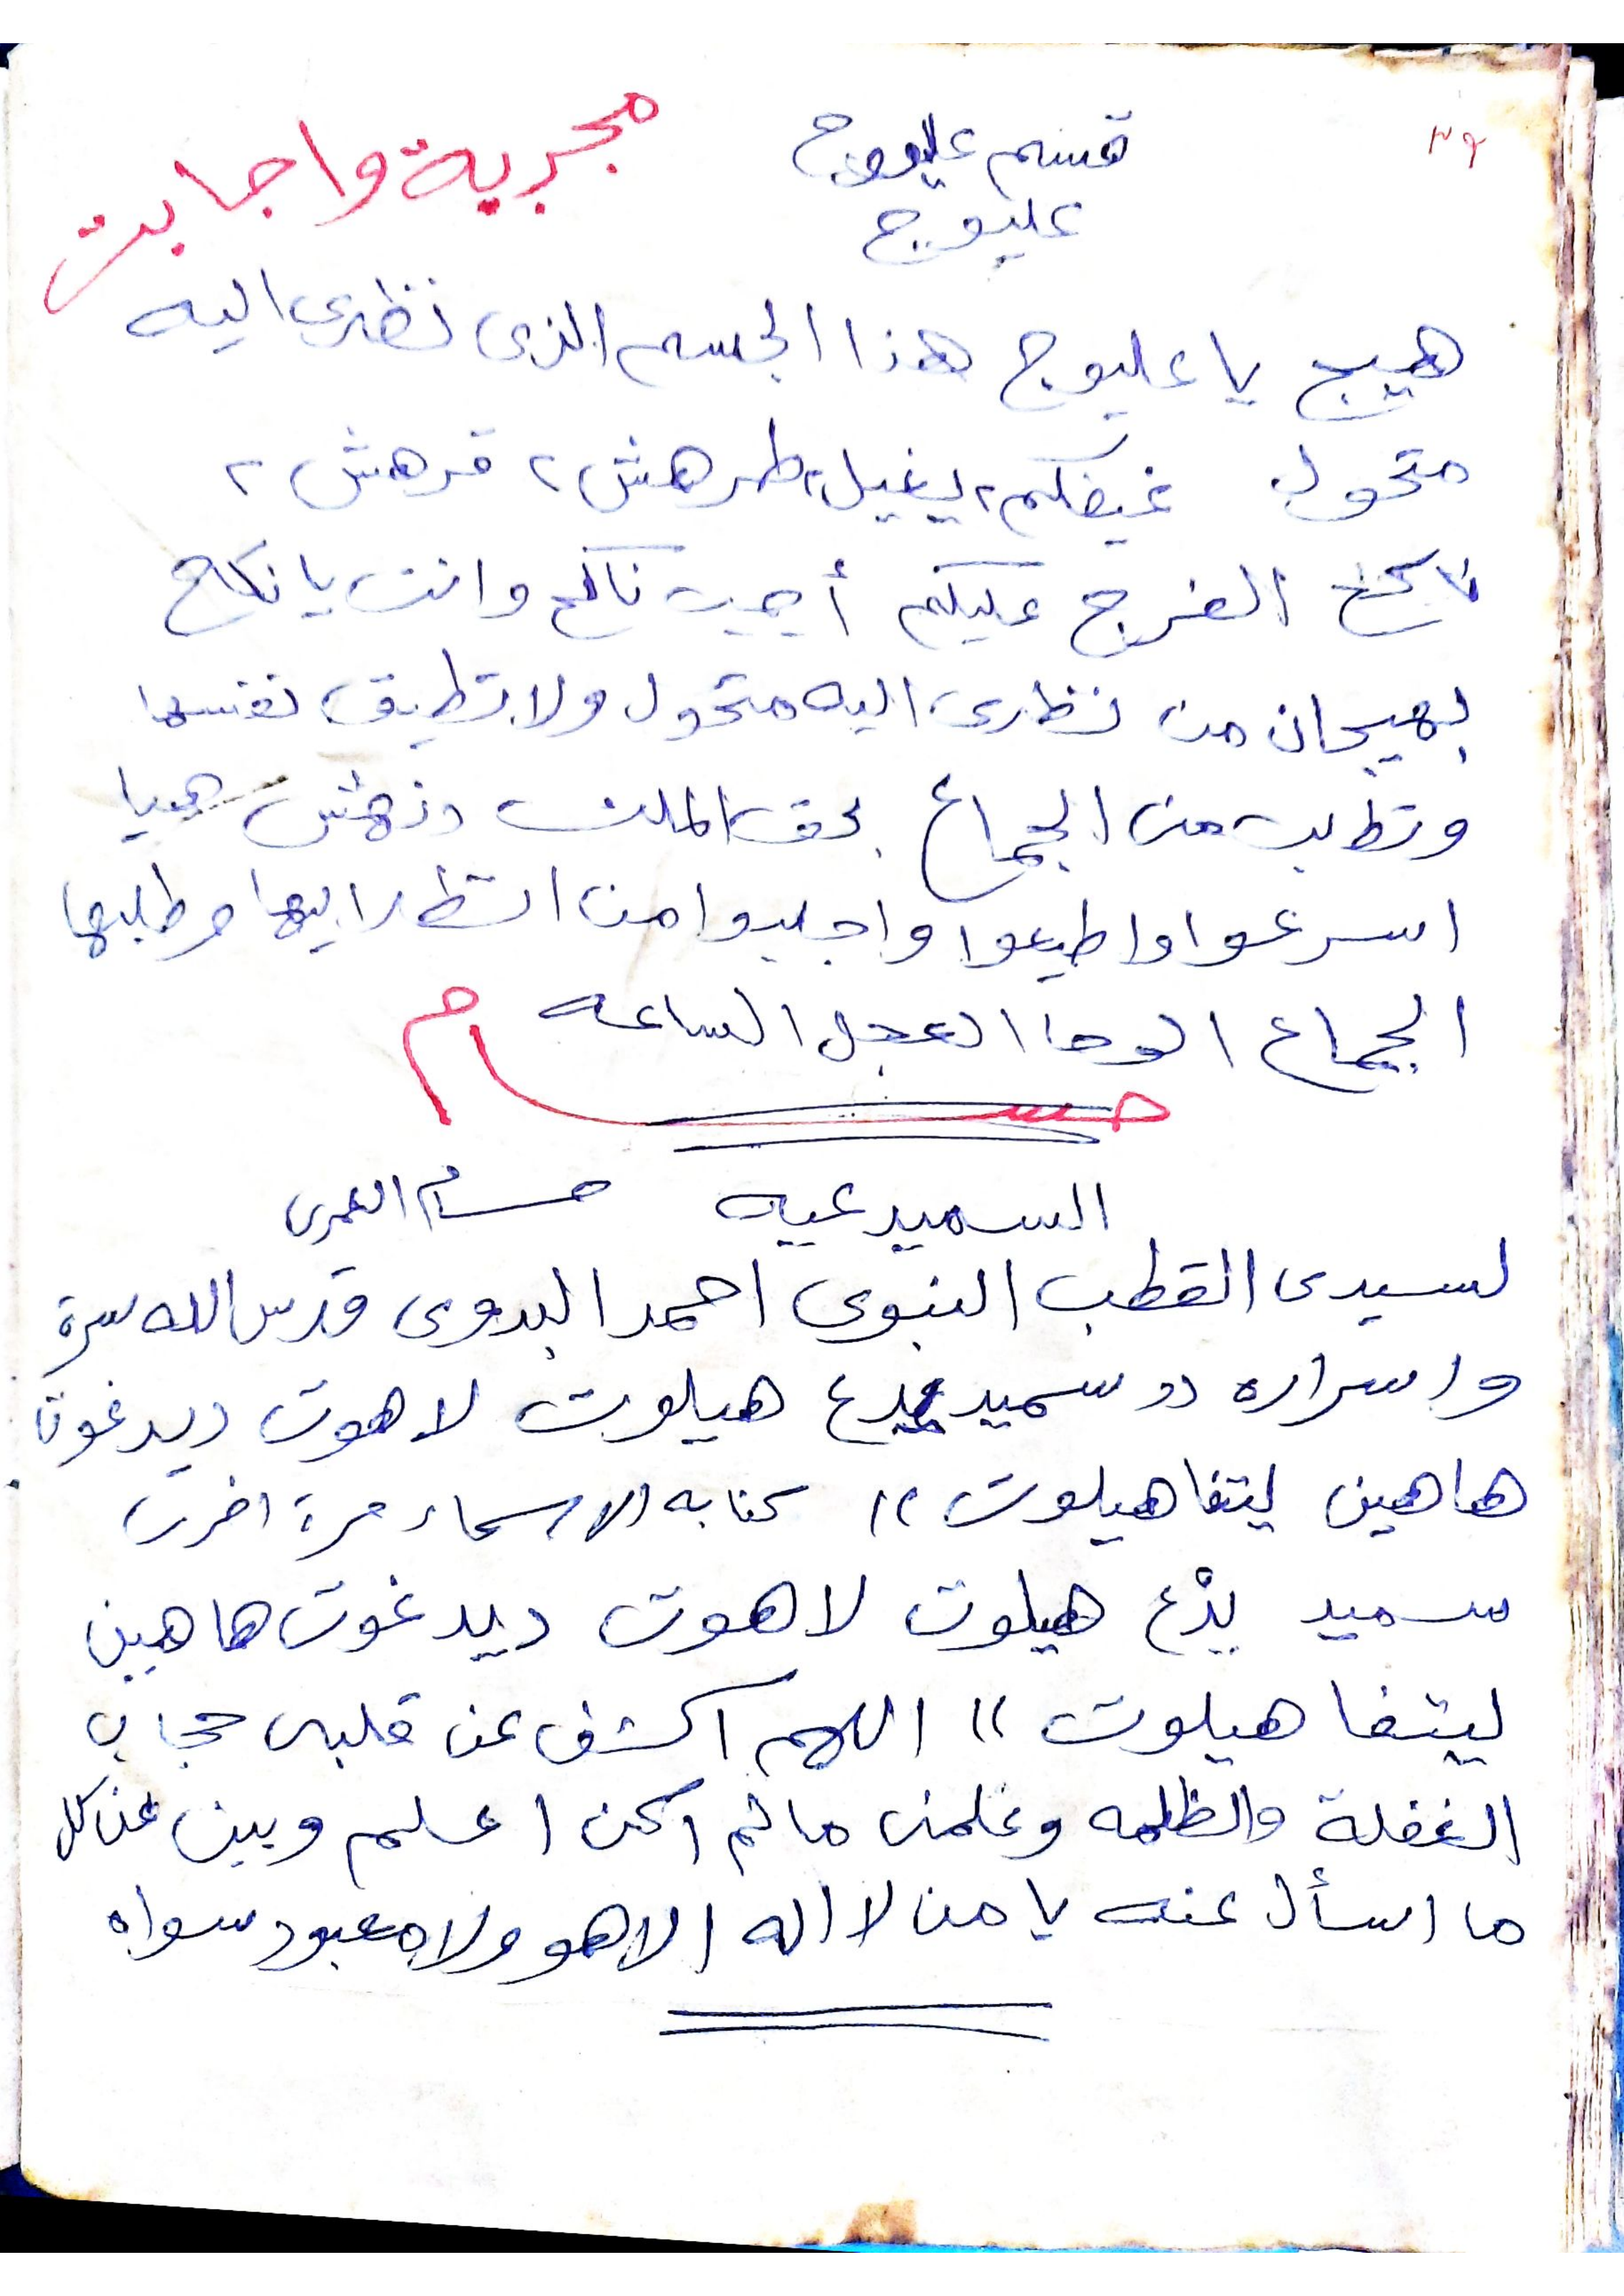 ٣٩
قسم عليوج
مجربة واجابت
عليوج
هيج يا عليوج هذا الجسم الذى نظرى اليه
متحول غيضكم ٢ يغيل ٢ طرهش ٢ قرهش ٢
ناكح الفرج عليكم أجيب ناكح وانت يا نكاح
بهيجان من نظرى اليه متحول ولا تطيق نفسها
وتطلب من الجماع بحق الملك هيا
اسرعوا واطيعوا واجلبوا من انظر اليها وطلبها
الجماع الوحا العجل الساعه
حسام
السميدعيه حسام العمرى
لسيدى القطب النبوى احمد البدوى قدس الله سرة
واسراره " سميد يدع هيلوت لاهوت ديدغوت
هاهين ليتفاهيلوت " كتابه الاسماء مرة اخرى
سميد يدْع هيلوت لاهوت ديدغوت هاهين
ليتفاهيلوت " اللهم اكشف عن قلبى حجاب
الغفلة والظلمه وعلمنى مالم اكن اعلم وبين عن كل
ما اسأل عنه يا من لا اله الا هو ولا معبود سواه